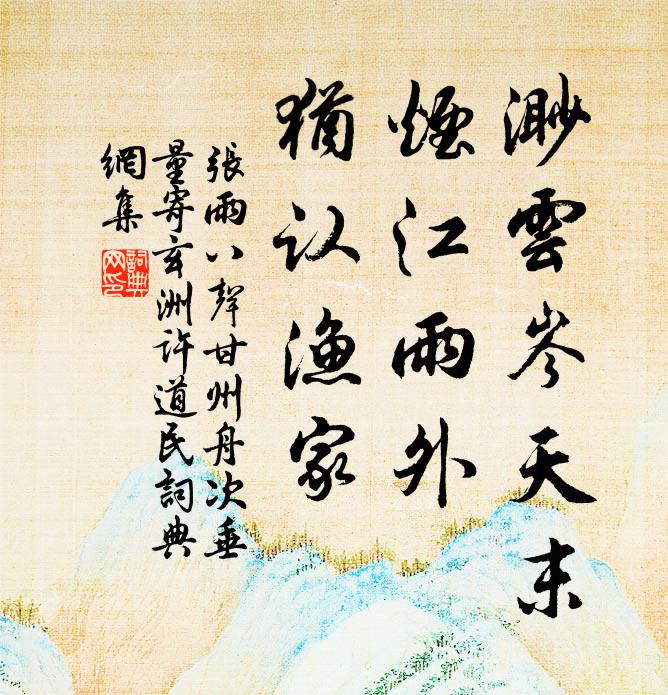 渺雲岑天末
煙江雨外
猶认漁家
張雨八聲甘州舟次垂
量寄玄洲许道民詞典
網集
詞典
网印